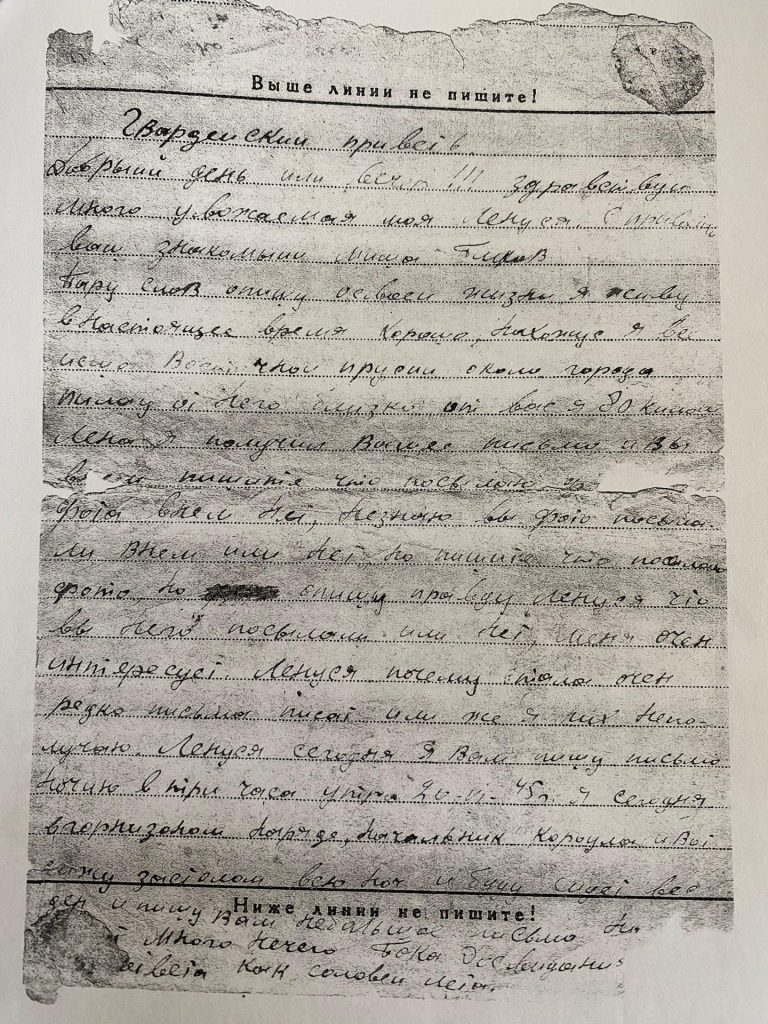 Выше линии не пишите!
Гвардейский привет
Добрый день или вечер!!! здравствуй
много уважаемая моя Ленуся. С приветом
ваш знакомый Миша
Пару слов опишу освоей жизни я живу
внастоящее время хорошо, нахожус я
Восточной прусии около города
пилау от него близко от вас я 80
Лена я получил Ваше письмо и Вы
пишите что посылаю
фота внем нет, незнаю вы фото посыла-
ли внем или нет, но пишите что посылали
фото, но опишу правду Ленуся что
вы него посылали или нет, меня очен
интересует. Ленуся почему стала очен
редко письма писат или же я них непо-
лучаю. Ленуся сегодня я Вам пишу письмо
ночию в три часа утра 45г. я сегодня
вгорнизоном наряде, начальник короула и вот
сижу застолом всю ноч и буду сидет вес
ден и пишу Вам небольшое письмо
Ниже линии не пишите!
много нечего Пока досвидания
ответа как соловей лета.